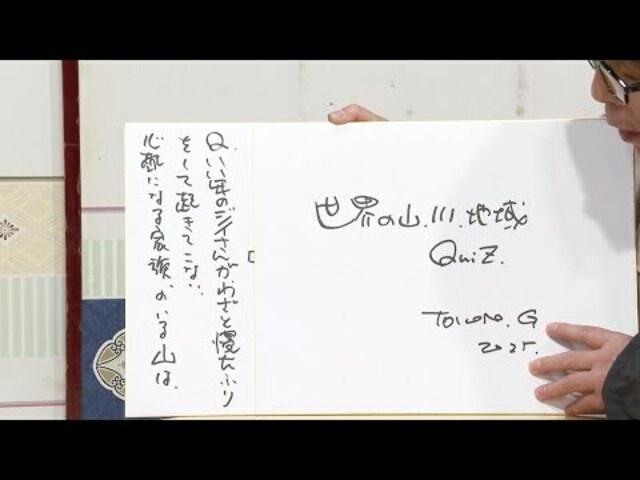 Q.いい年のジイさんがわざと寝たふり
をして起きてこない.
心配になる家族.のいる山は.
世界の山.川.地域
QuiZ.
TOKORO.G
2025.